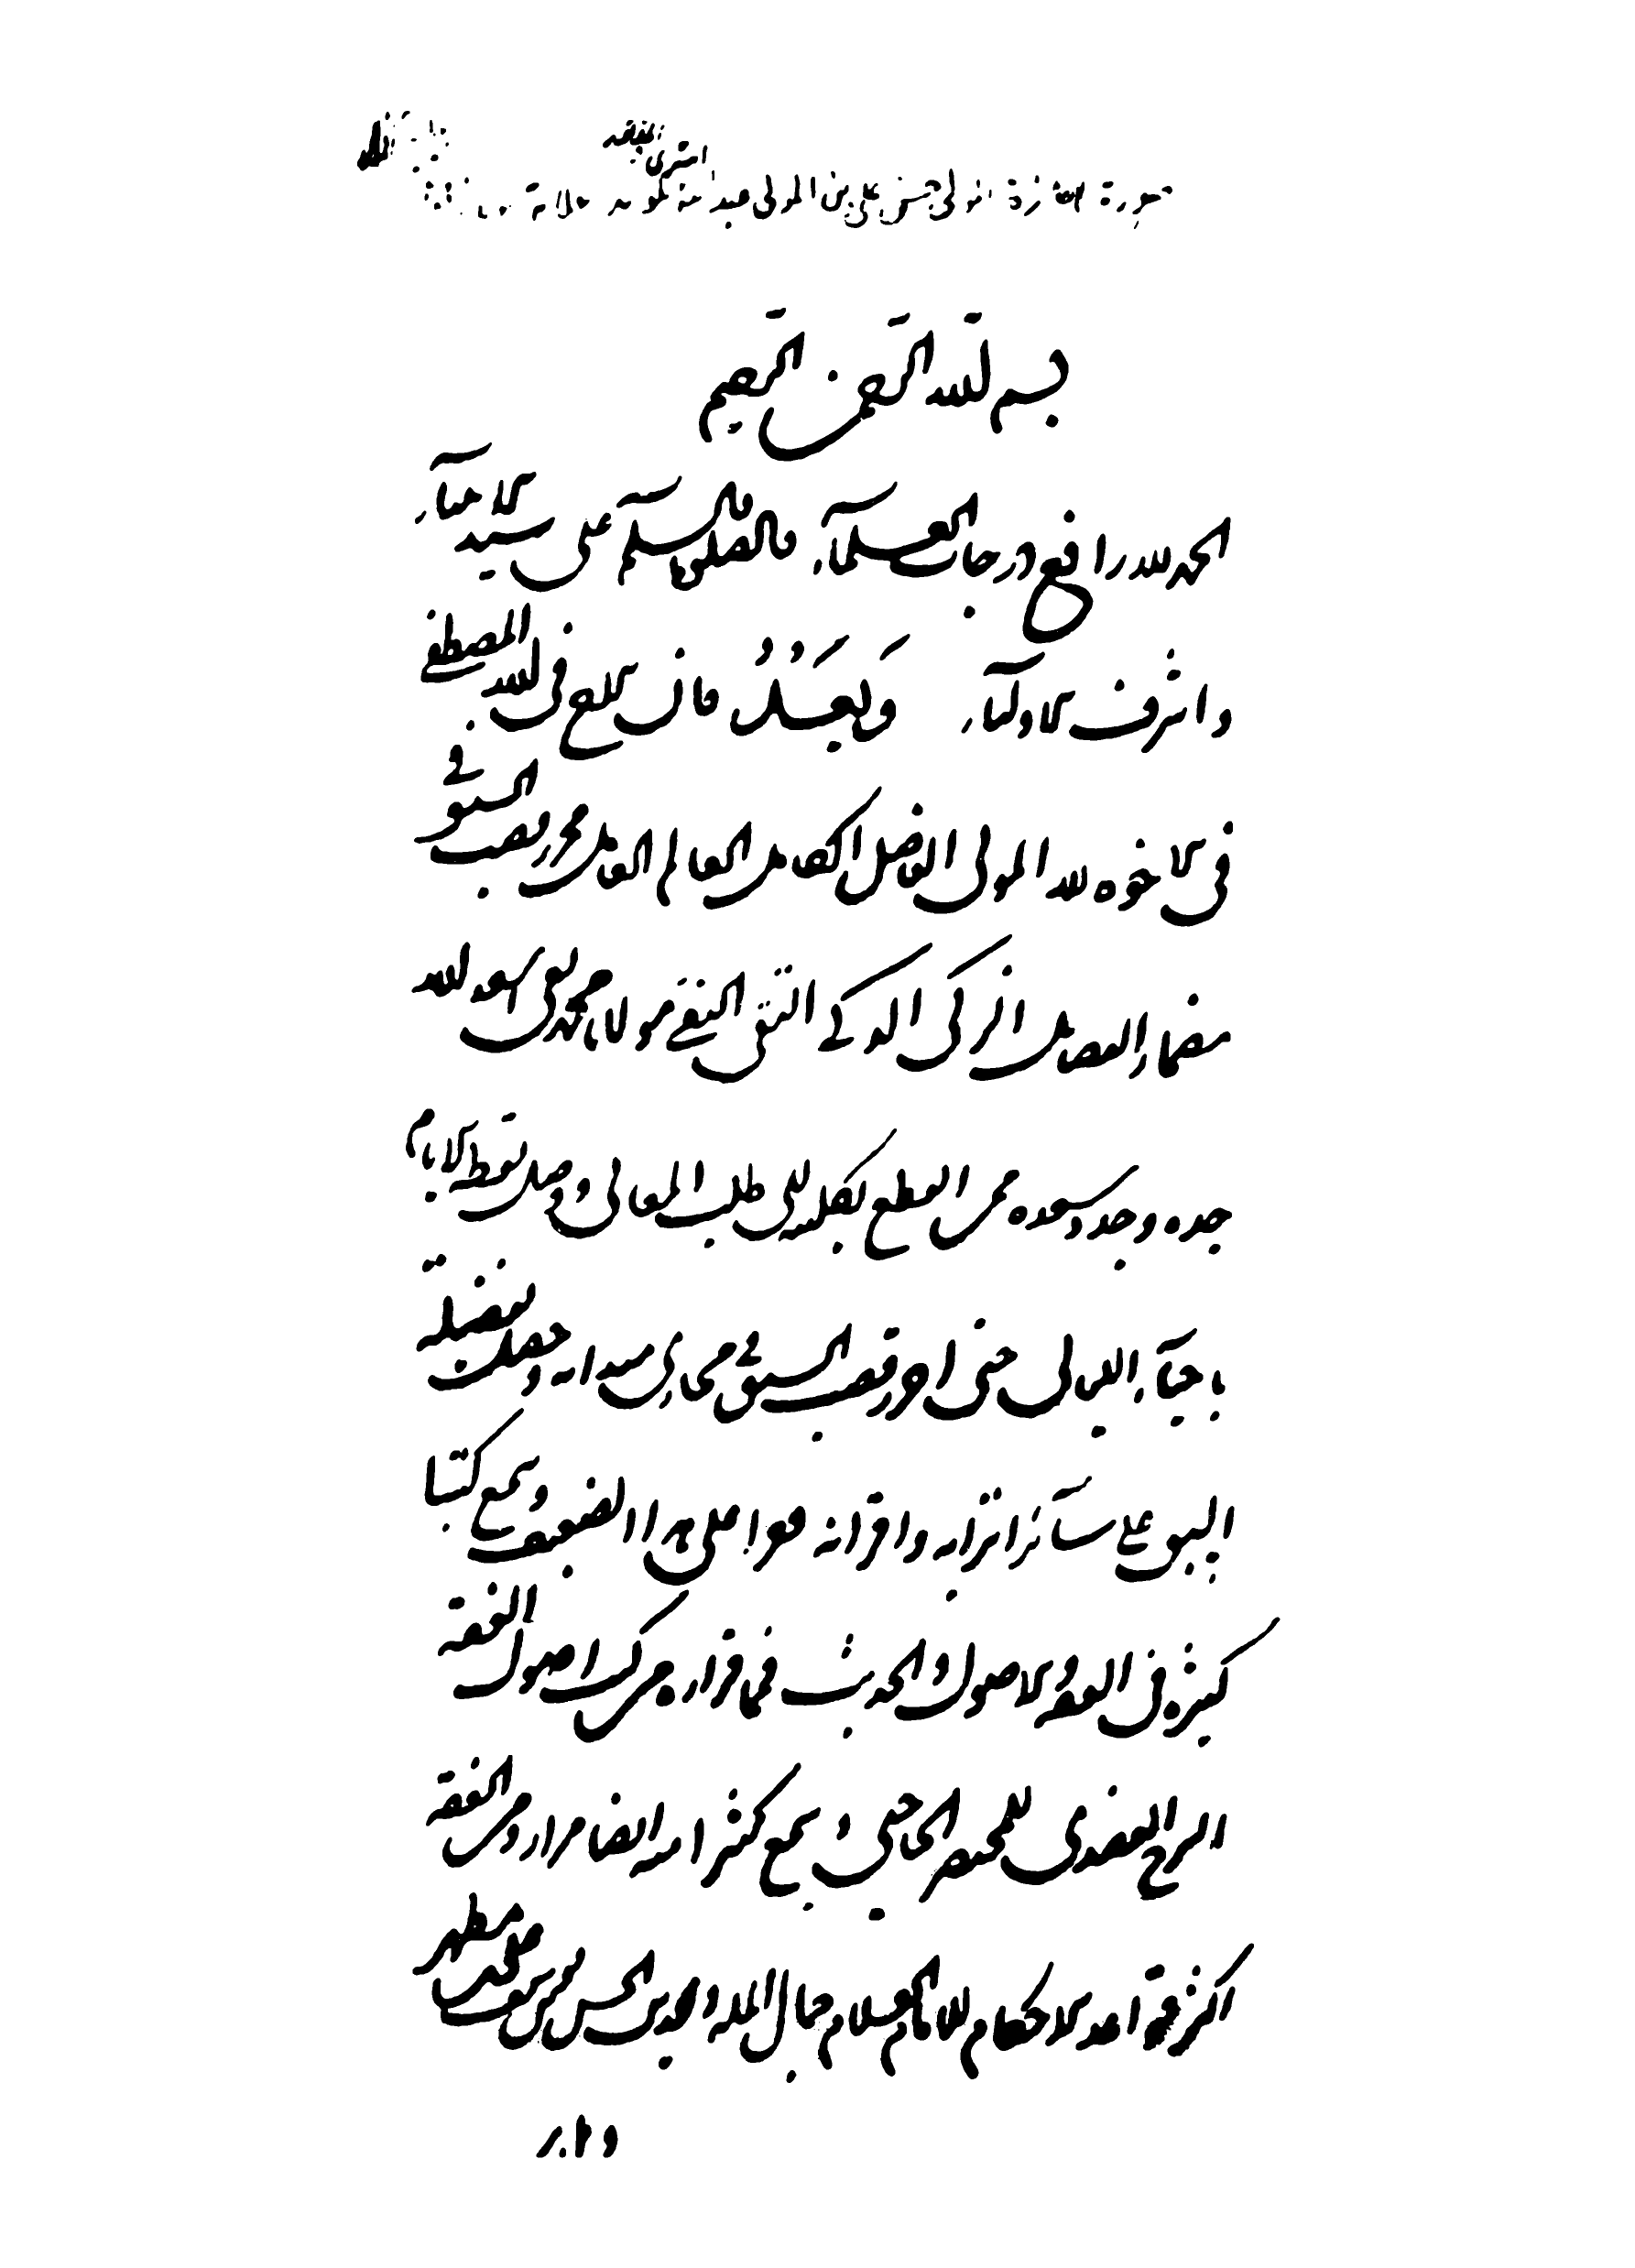 صورة اجازة المولى حسن علي بن المولى عبد الله التستري
بسم الله الرحمن الرحيم
الحمد لله رافع درجات العلماء والصلوة والسلم على سيد الانبياء
واشرف الاولياء وَبَعَدُ فان الاخ في الله المصطفى
في الاخوه لله المولى الفاضل الكامل العالم العامل محرز قصب السبق في
مضمار الفضايل الزكي الذكي التقي النقي مولانا محمد تقي اسعد الله
جده وجدد سعده ممن انقطع بكليته الى طلب المعالي ووصل يقظه الايام
باحياء الليالي حتى احرز قصب السبق في مجاري ميدانه وحصلت بفضيلته
السبق على سائر اترابه واقرانه فقرا على هذا الضعيف وسمع كتبا
كثيرة في الفقه والاصول والحديث فمما قراه من كتب اصول الفقه
الشرح العضدي للمختصر الحاجبي وسمع كثيرا منه ايضا مرارا ومن الفقه
اكثر قواعد الاحكام للامام العلام جمال المله والدين الحسن بن يوسف بن علي بن مطهر